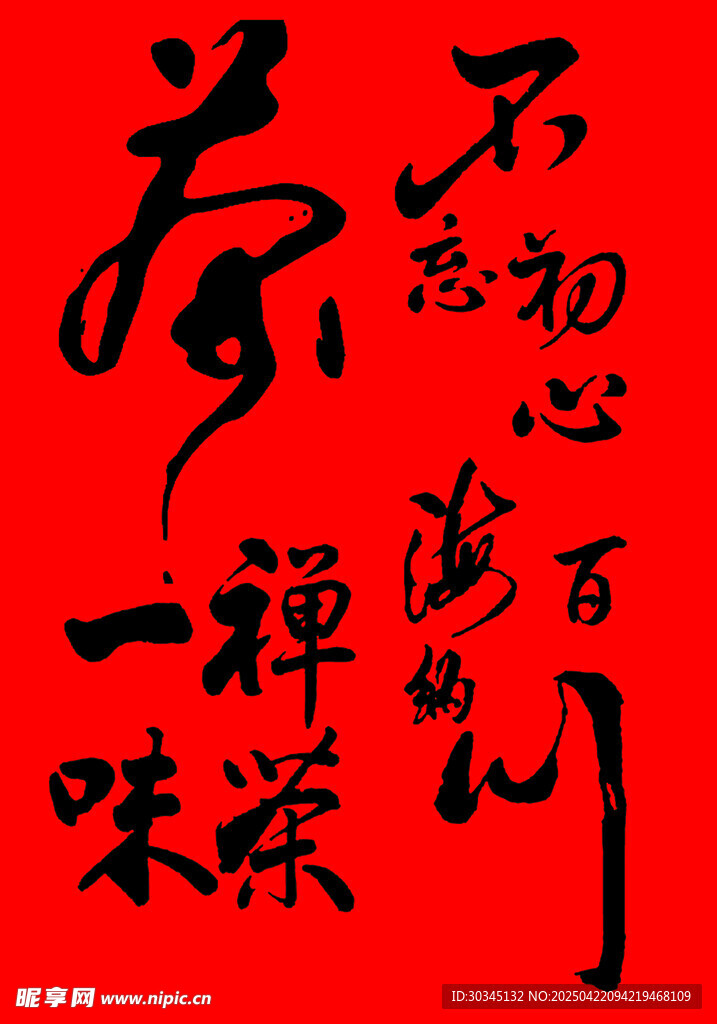 茶
不忘初心
禅茶一味
海纳百川
昵享网 www.nipic.cn
ID:30345132 NO:20250422094219468109